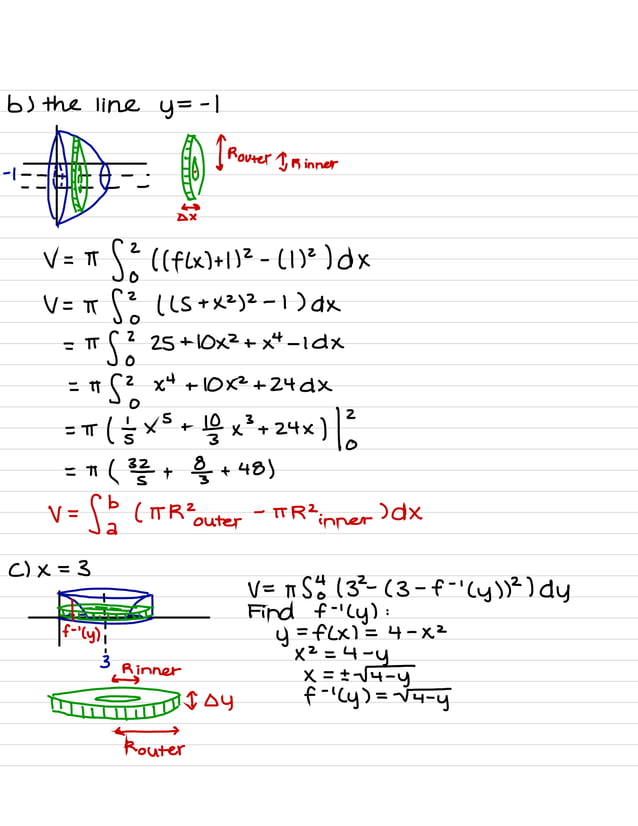 b) the line y = -1
-1
Router Rinner
Δx
V = π ∫₀² ((f(x)+1)² - (1)²) dx
V = π ∫₀² ((5 + x²)² - 1) dx
= π ∫₀² 25 + 10x² + x⁴ - 1 dx
= π ∫₀² x⁴ + 10x² + 24 dx
= π (1/5 x⁵ + 10/3 x³ + 24x) |₀²
= π (32/5 + 8/3 + 48)
V = ∫ₐᵇ (πR²outer - πR²inner) dx
c) x = 3
f⁻¹(y)
3
Rinner
Δy
Router
V = π ∫₀⁴ (3² - (3 - f⁻¹(y))²) dy
Find f⁻¹(y):
y = f(x) = 4 - x²
x² = 4 - y
x = ±√4-y
f⁻¹(y) = √4-y